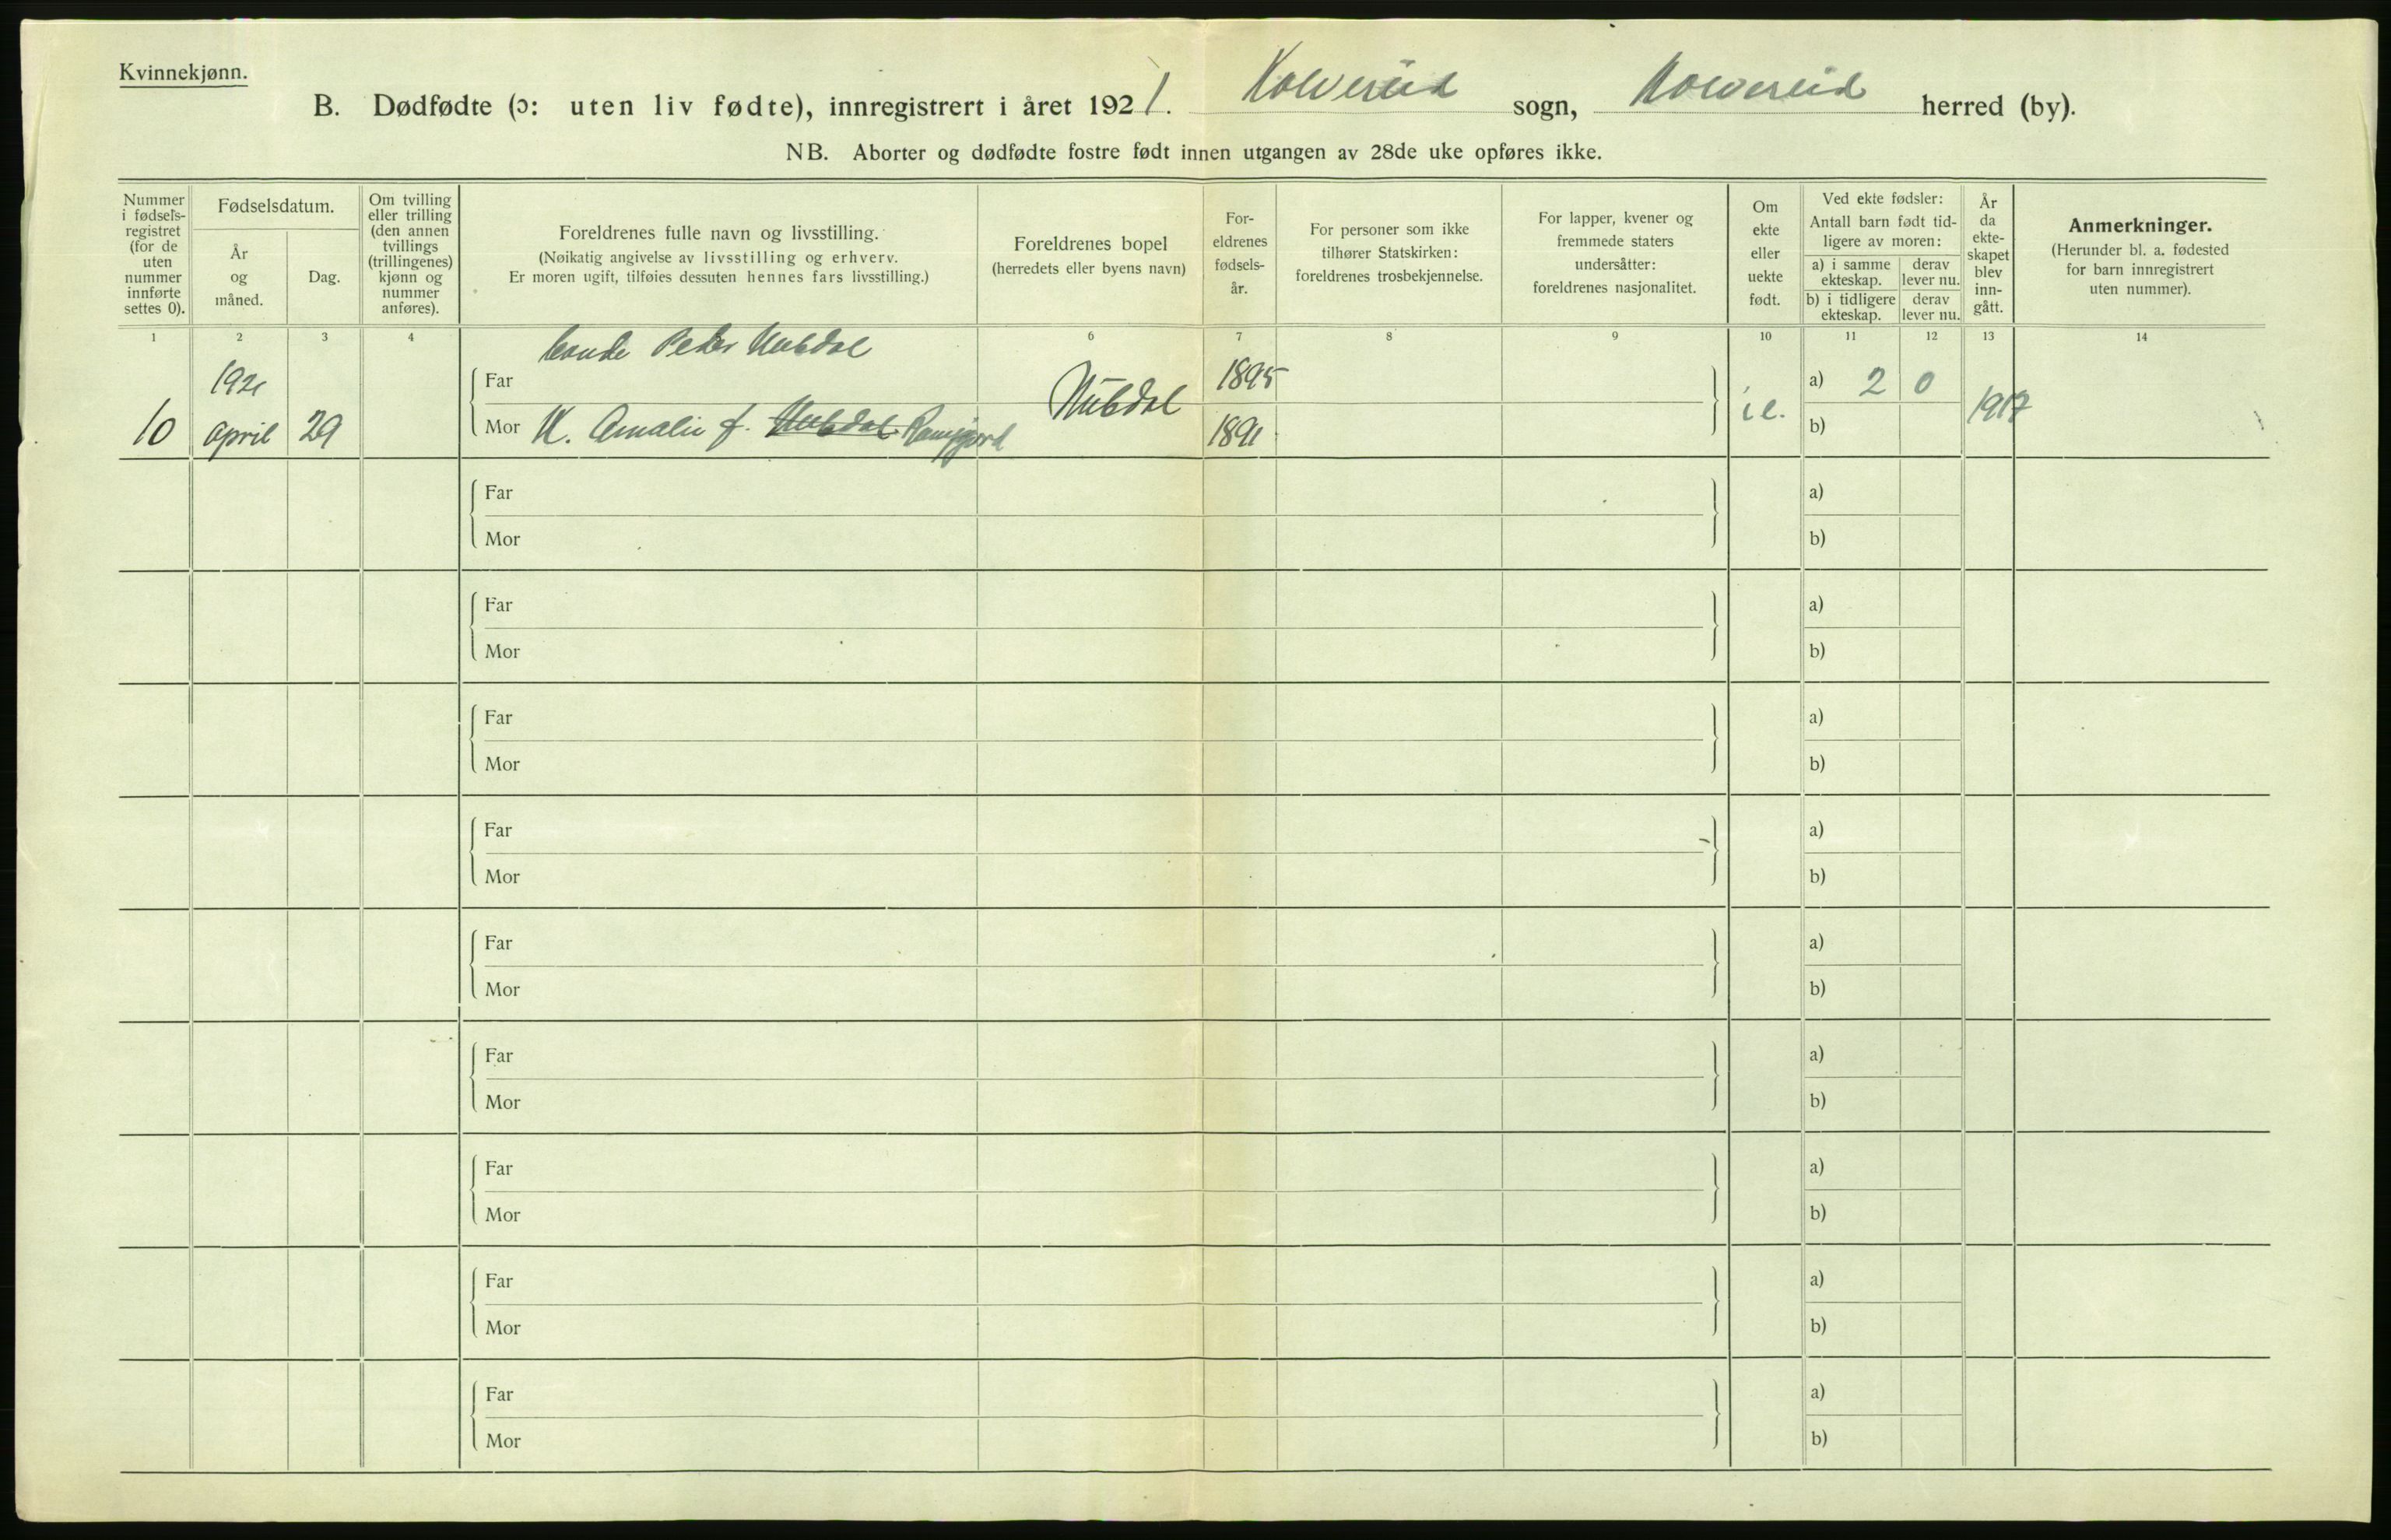 Kvinnekjønn.
B. Dødfødte (ɔ: uten liv fødte), innregistrert i året 1921. Kolvereid sogn, Kolvereid herred (by).
NB. Aborter og dødfødte fostre født innen utgangen av 28de uke opføres ikke.
Nummer
i fødsels-
registret
(for de
uten
nummer
innførte
settes 0).
Fødselsdatum.
År
og
måned.
Dag.
Om tvilling
eller trilling
(den annen
tvillings
(trillingenes)
kjønn og
nummer
anføres).
Foreldrenes fulle navn og livsstilling.
(Nøikatig angivelse av livsstilling og erhverv.
Er moren ugift, tilføies dessuten hennes fars livsstilling.)
Foreldrenes bopel
(herredets eller byens navn)
For-
eldrenes
fødsels-
år.
For personer som ikke
tilhører Statskirken:
foreldrenes trosbekjennelse.
For lapper, kvener og
fremmede staters
undersåtter:
foreldrenes nasjonalitet.
Om
ekte
eller
uekte
født.
Ved ekte fødsler:
Antall barn født tid-
ligere av moren:
a) i samme
ekteskap.
derav
lever nu.
b) i tidligere
ekteskap.
derav
lever nu.
År
da
ekte-
skapet
blev
inn-
gått.
Anmerkninger.
(Herunder bl. a. fødested
for barn innregistrert
uten nummer).
1 2 3 4 6 7 8 9 10 11 12 13 14
Peder Hubdal
1921 Far 1895 a) 2 0
10 april 29 Mor K. Amalie f. Hubdal Ramfjord Hubdal 1891 b) 1917
Far a)
Mor b)
Far a)
Mor b)
Far a)
Mor b)
Far a)
Mor b)
Far a)
Mor b)
Far a)
Mor b)
Far a)
Mor b)
Far a)
Mor b)
Far a)
Mor b)